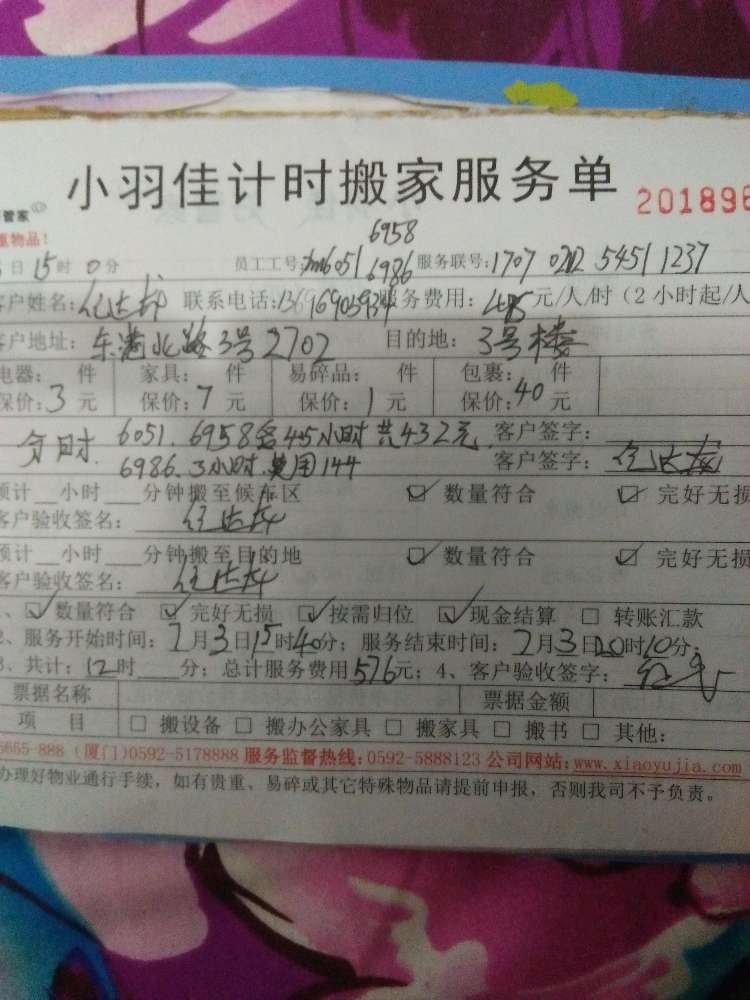 小羽佳计时搬家服务单 201896
管家
重物品!
6958
日15时0分 员工工号:xm6051 6986 服务联号:1707 0212 5451 1237
客户姓名: 联系电话:13696905934服务费用:48元/人/时(2小时起/人
客户地址: 东浦北路3号2702 目的地: 3号楼
电器: 件 家具: 件 易碎品: 件 包裹: 件
保价:3元 保价:7元 保价:1元 保价:40元
分时. 6051. 6958各4.5小时 共432元 客户签字:
6986. 3小时.费用144 客户签字:
预计__小时___分钟搬至候车区 ☑数量符合 ☑完好无损
客户验收签名:
预计__小时___分钟搬至目的地 ☑数量符合 ☑完好无损
客户验收签名:
1、☑数量符合 ☑完好无损 ☑按需归位 ☑现金结算 □转账汇款
2、服务开始时间:2月3日15时40分;服务结束时间:2月3日20时10分;
3、共计:12时___分;总计服务费用576元;4、客户验收签字:
票据名称 票据金额
项目 □搬设备 □搬办公家具 □搬家具 □搬书 □其他:
5655-888(厦门)0592-5178888 服务监督热线:0592-5888123 公司网站:www.xiaoyujia.com
办理好物业通行手续,如有贵重、易碎或其它特殊物品请提前申报,否则我司不予负责。